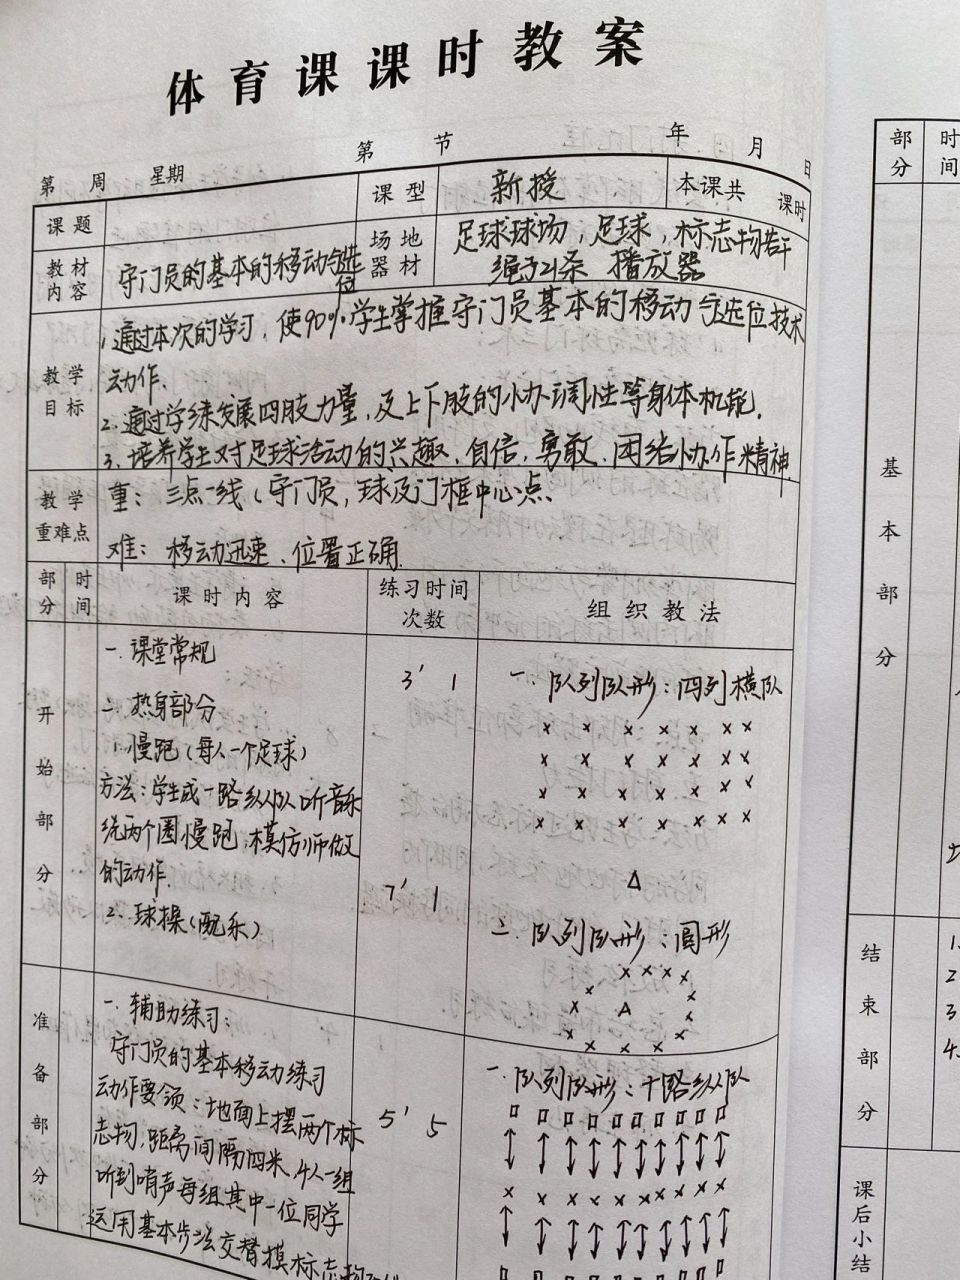 体育课课时教案
第 周 星期 第 节 年 月 日
课题 课型 新授 本课共 课时
教材内容 守门员的基本的移动与选位 场地器材 足球球场,足球,标志物若干
绳子21条 播放器
教学目标 1.通过本次的学习,使90%学生掌握守门员基本的移动与选位技术
动作.
2.通过学练发展四肢力量,及上下肢的协调性等身体机能.
3.培养学生对足球活动的兴趣、自信,勇敢.团结协作精神.
教学重难点 重:三点一线(守门员,球及门框中心点、
难:移动迅速、位置正确.
部分 时间 课时内容 练习时间 次数 组织教法
开始部分
一.课堂常规
3' 1
二.热身部分
1.慢跑(每人一个足球)
方法:学生成一路纵队听音乐
绕两个圈慢跑,模仿师做
的动作.
7' 1
2.球操(配乐)
一.队列队形:四列横队
二.队列队形:圆形
准备部分
一.辅助练习:
守门员的基本移动练习
动作要领:地面上摆两个标
志物,距离间隔四米.4人一组
听到哨声每组其中一位同学
运用基本步法交替摸标志物
5' 5
一.队列队形:十路纵队
部分 时间
基本部分
结束部分
1.
2
3
4.
课后小结